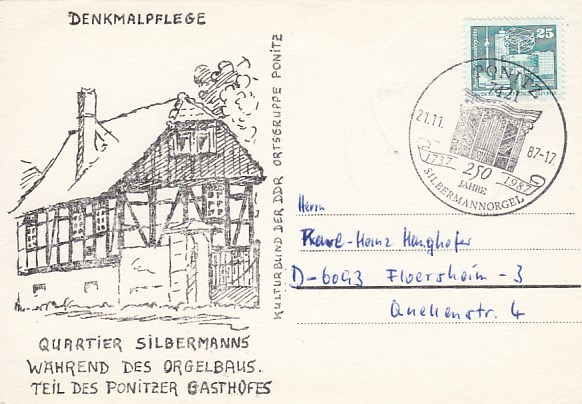 DENKMALPFLEGE
KULTURBUND DER DDR ORTSGRUPPE PONITZ
QUARTIER SILBERMANNS
WÄHREND DES ORGELBAUS.
TEIL DES PONITZER GASTHOFES
25
PONITZ
7421
21.11. 87-17
1737 250 1987
JAHRE
SILBERMANNORGEL
Herrn
Karl-Heinz
D-6093 Floersheim - 3
Quellenstr. 4